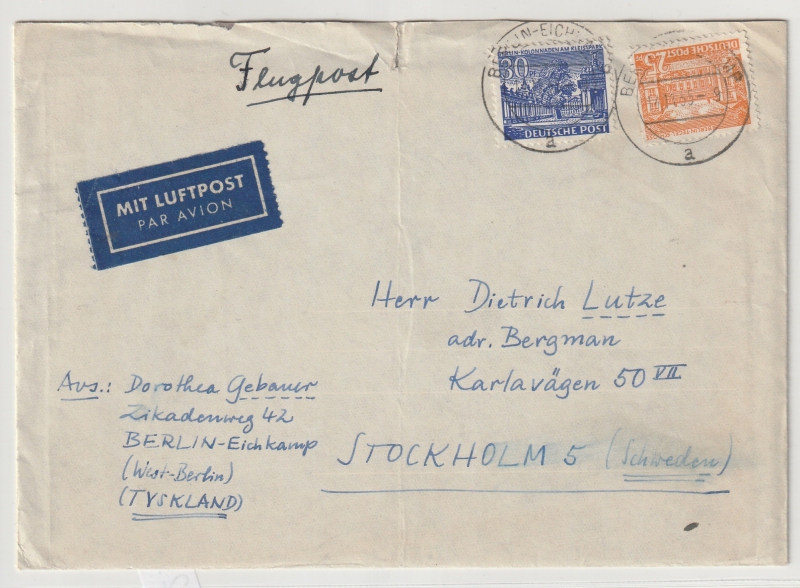 Flugpost
BERLIN-KOLONNADEN AM KLEISTPARK
30
DEUTSCHE POST
a
25
DEUTSCHE POST
a
MIT LUFTPOST
PAR AVION
Herr Dietrich Lutze
adr. Bergman
Karlavägen 50 VII
STOCKHOLM 5 (Schweden)
Avs.: Dorothea Gebauer
Zikadenweg 42
BERLIN-Eichkamp
(West-Berlin)
(TYSKLAND)